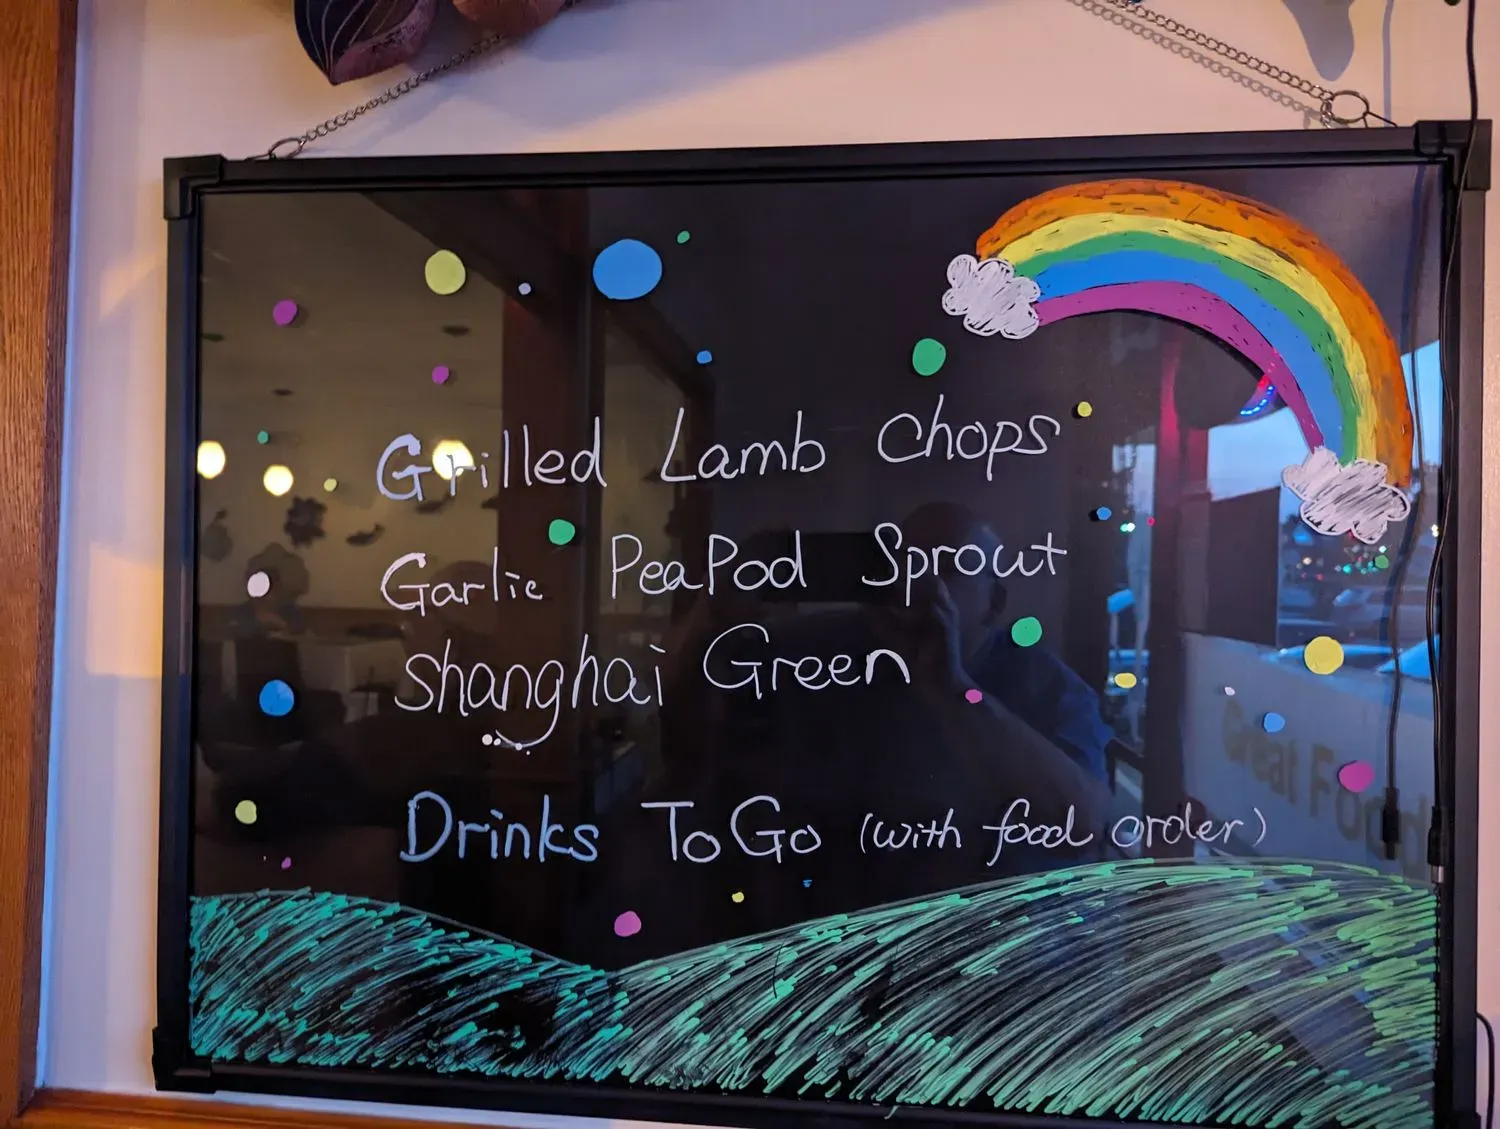 Grilled Lamb Chops
Garlic PeaPod Sprout
Shanghai Green
Drinks To Go (with food order)
Great Food